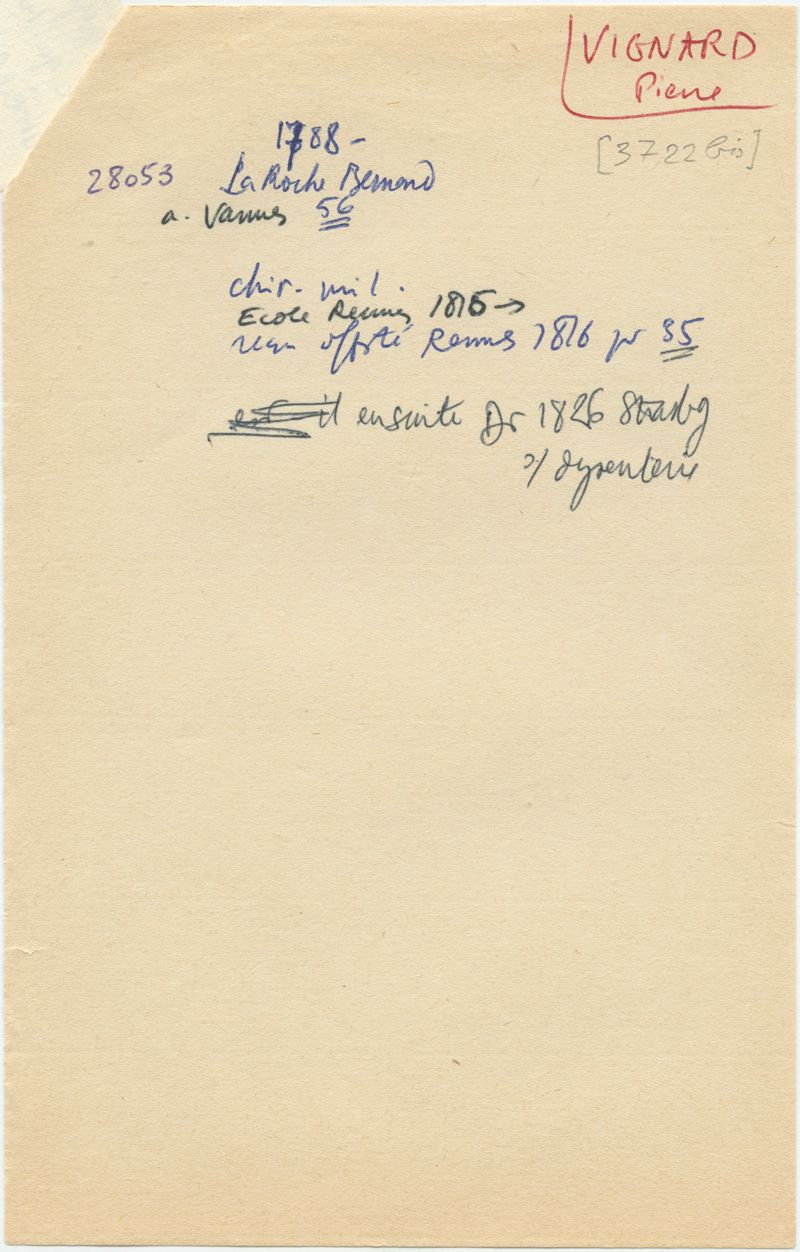 VIGNARD
Pierre
[3722 bis]
1788 -
28053 La Roche Bernard
a. Vannes 56
chir. mil.
Ecole Rennes 1815 →
reçu offté Rennes 1816 pr 35
est il ensuite Dr 1826 Strasbg
s/ dysenterie